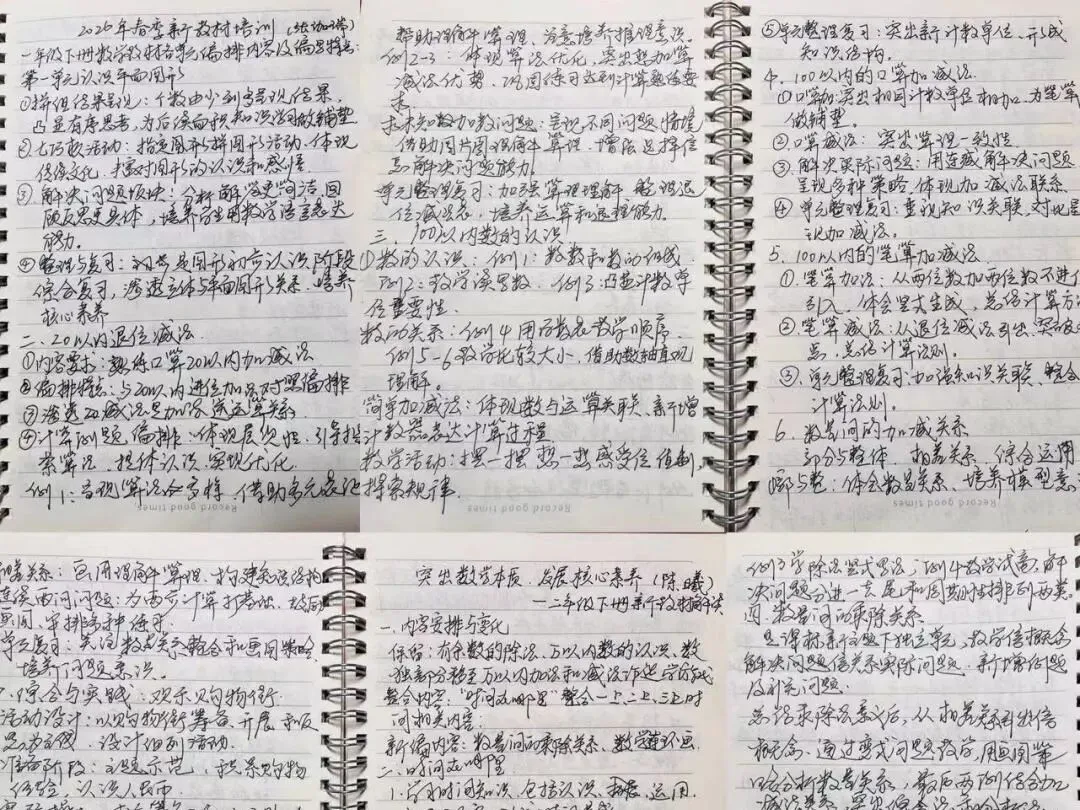 2026年春季新教材培训
一年级下册数学教材各单元编排内容及编写特点:
第一单元认识平面图形
①拼组结果呈现:个数由少到多呈现结果,
凸显有序思考,为后续面积知识学习做铺垫
②七巧板活动:指定图形拼图形活动.体现
传统文化.丰富对图形的认识和感悟
③解决问题板块:分析解答更简洁.回
顾反思更具体,培养学生用数学语言表达
能力。
④整理与复习:初步是图形初步认识阶段
综合复习,渗透立体与平面图形关系.培养
核心素养
二、20以内退位减法
①内容要求:熟练口算20以内加减法
②编排特点:与20以内进位加法对照编排
③渗透20减法是加法逆运算关系
④计算例题编排:体现层次性.引导探
索算法.具体认识.实现优化.
例1:呈现算法多样.借助多元表征
帮助理解算理.注意培养推理意识。
例2-3:体现算法优化,突出想加算
减法优势.巩固练习达到计算熟练要
求。
求未知数加数问题:呈现不同问题情境
借助图片图理解算理.增强选择信
息解决问题能力。
单元整理复习:加强算理理解.整理退
位减法表,培养运算和推理能力.
三.100以内数的认识
①数的认识:例1:数数和数的组成
例2:教学读写数.例3:凸显计数单
位重要性.
数的关系:例4用百数表教学顺序
例5-6教学比较大小.借助数轴直观
理解。
简单加减法:体现数与运算关联.新增
计数器表达计算过程
数学活动:摆一摆想一想感受位值制,
探索规律.
Record good times
⑤单元整理复习:突出新计数单位.形成
知识结构.
4.100以内的口算加减法.
①口算加:突出相同计数单位相加.为笔算
做铺垫.
②口算减法:突出算理一致性
③解决实际问题:用连减解决问题
呈现多种策略.体现加减法联系
④单元整理复习:重视知识关联.对比呈
现加减法。
5.100以内的笔算加减法.
①笔算加法:从两位数加两位数不进位
引入.体会竖式生成.总结计算方法
②笔算减法:从退位减法引出.突破难
点.总结计算法则。
③单元整理复习:加强知识关联.整合
计算法则。
6.数量间的加减关系
部分与整体.相差关系.综合运用
部与整:体会数量关系、培养模型意识
相差关系:画图理解算理.构建知识结构
连续两问问题:为两步计算打基础
画图、穿排多种练习.
单元复习:关注数量关系整合和画图策略
培养问题意识。
7.综合与实践:欢乐购物街.
活动设计:以购物街筹备.开展.和反
思为主线.设计系列活动.
准备阶段:主题示范,积累购物
经验,认识人民币.
突出数学本质.发展核心素养(陈曦)
—二年级下册新教材解读
一.内容安排与变化
保留:有余数的除法、万以内数的认识、数
独部分移至
整合内容:"时间在哪里"整合一上、二上、三上时
间相关内容.
新编内容:数量间的乘除关系、数学连环画
二.时间在哪里
1.学习时间知识.包括认识、换算、运用.
例3学除法竖式写法;例4教学试商.解
决问题分进一去尾和周期性排列两类.
四.数量间的乘除关系.
是课标新设题下独立单元,教学倍概念
解决问题倍关系实际问题.新增例题
及补充问题.
总结乘除法意义后,从相差关系引出倍
概念.通过变式问题教学,用画图策
略分析数量关系,最后两例结合加